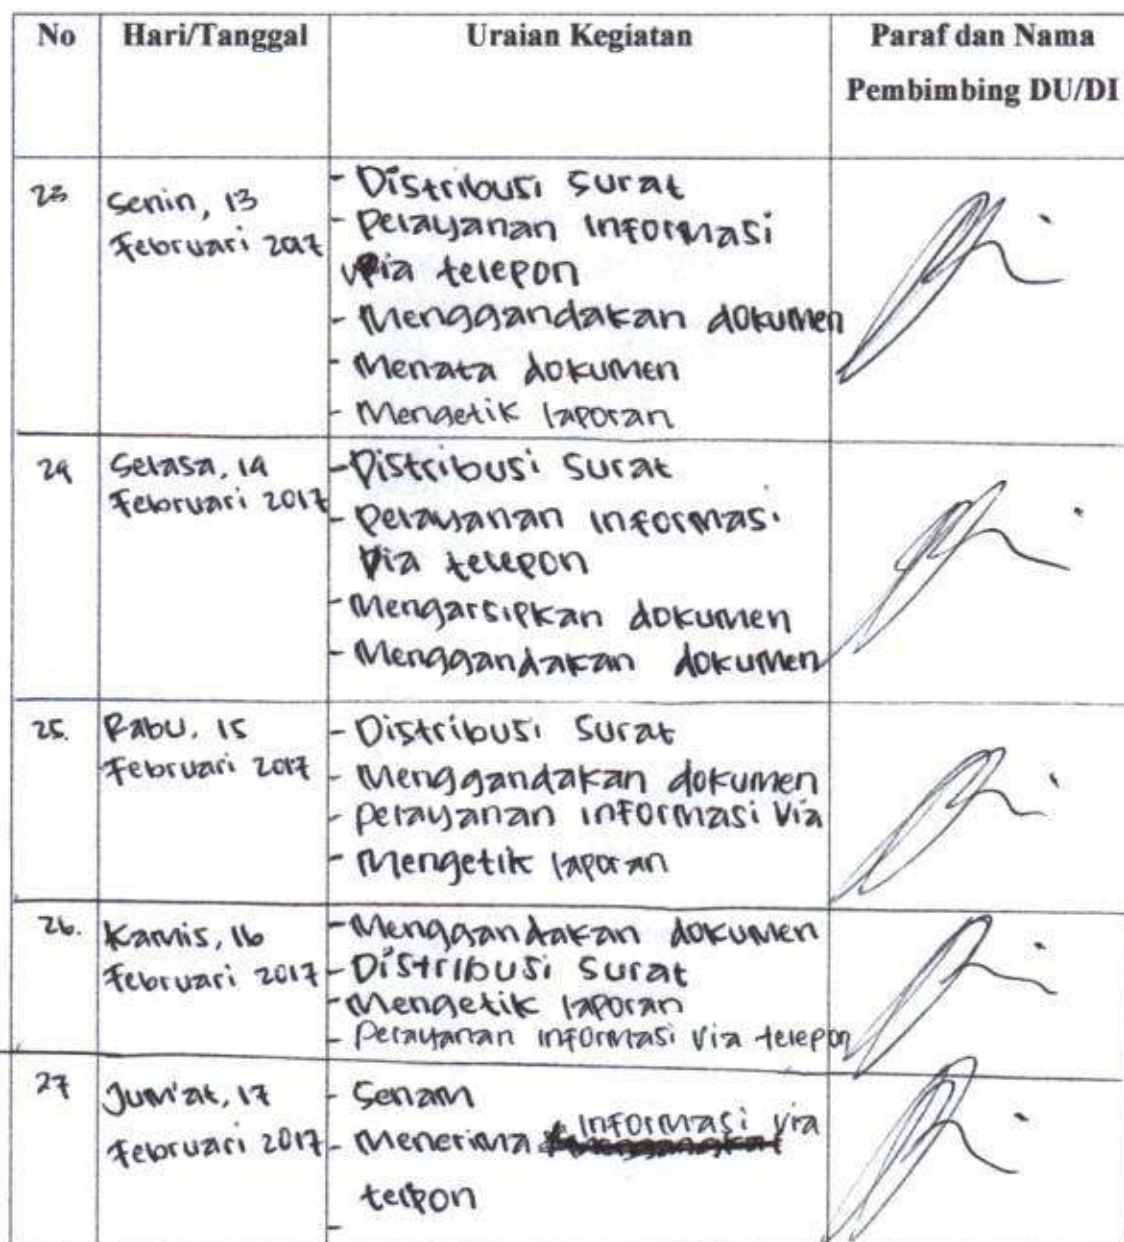 No Hari/Tanggal Uraian Kegiatan Paraf dan Nama
Pembimbing DU/DI
23 Senin, 13
Februari 2017
- Distribusi Surat
- Pelayanan Informasi
via telepon
- Menggandakan dokumen
- Menata dokumen
- Mengetik laporan
24 Selasa, 14
Februari 2017
- Distribusi Surat
- Pelayanan Informasi
Via telepon
- Mengarsipkan dokumen
- Menggandakan dokumen
25. Rabu, 15
Februari 2017
- Distribusi Surat
- Menggandakan dokumen
- pelayanan informasi Via
- Mengetik laporan
26. Kamis, 16
Februari 2017
- Menggandakan dokumen
- Distribusi Surat
- Mengetik laporan
- Pelayanan informasi Via telepon
27 Jum'at, 17
Februari 2017
- Senam
- Menerima Informasi via
telpon
-